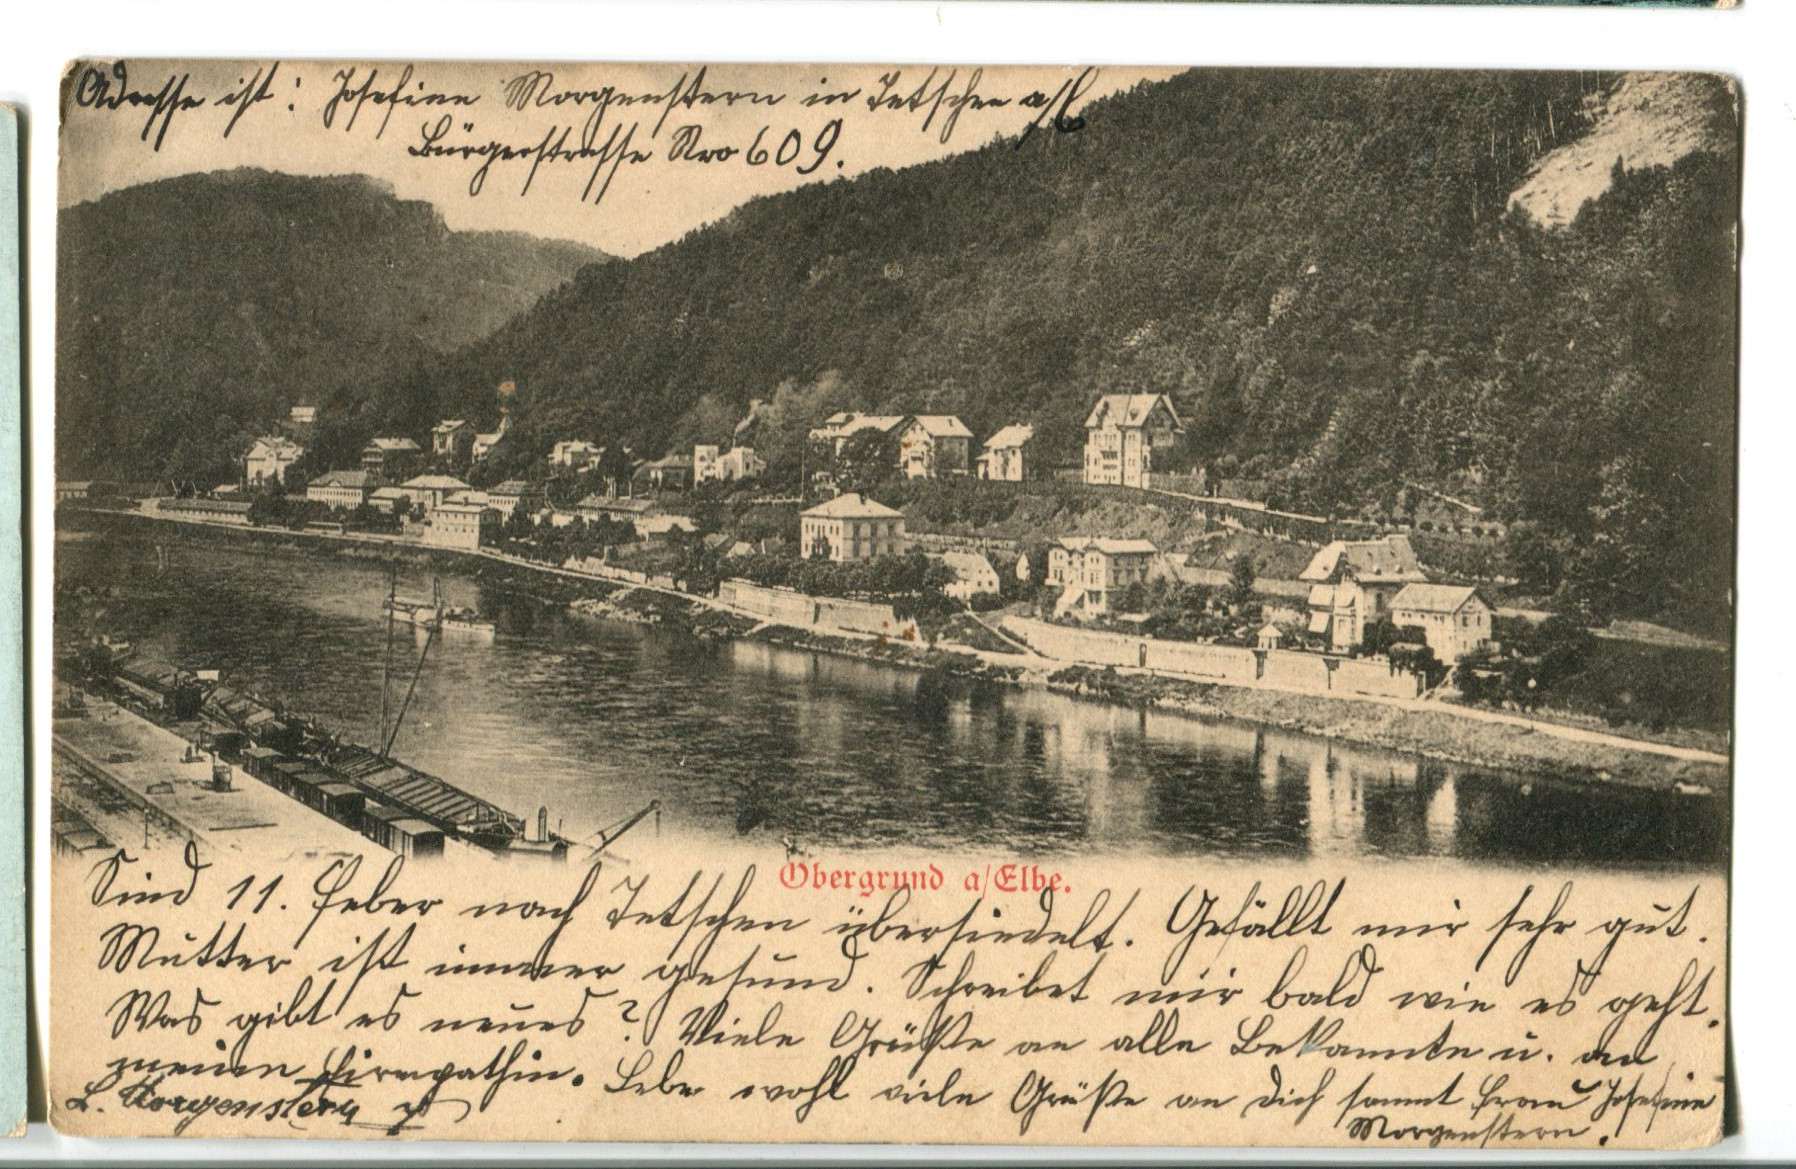 Adresse ist: Josefine Morgenstern in Tetschen a/E
Bürgerstrasse Nro 609.
Obergrund a/Elbe.
Sind 11. Feber nach Tetschen übersiedelt. Gefällt mir sehr gut.
Mutter ist immer gesund. Schreibet mir bald wie es geht.
Was gibt es neues? Viele Grüße an alle Bekannte u. an
meinen Lebe wohl viele Grüße an Dich sammt Frau Josefine
L. Morgenstern Morgenstern.